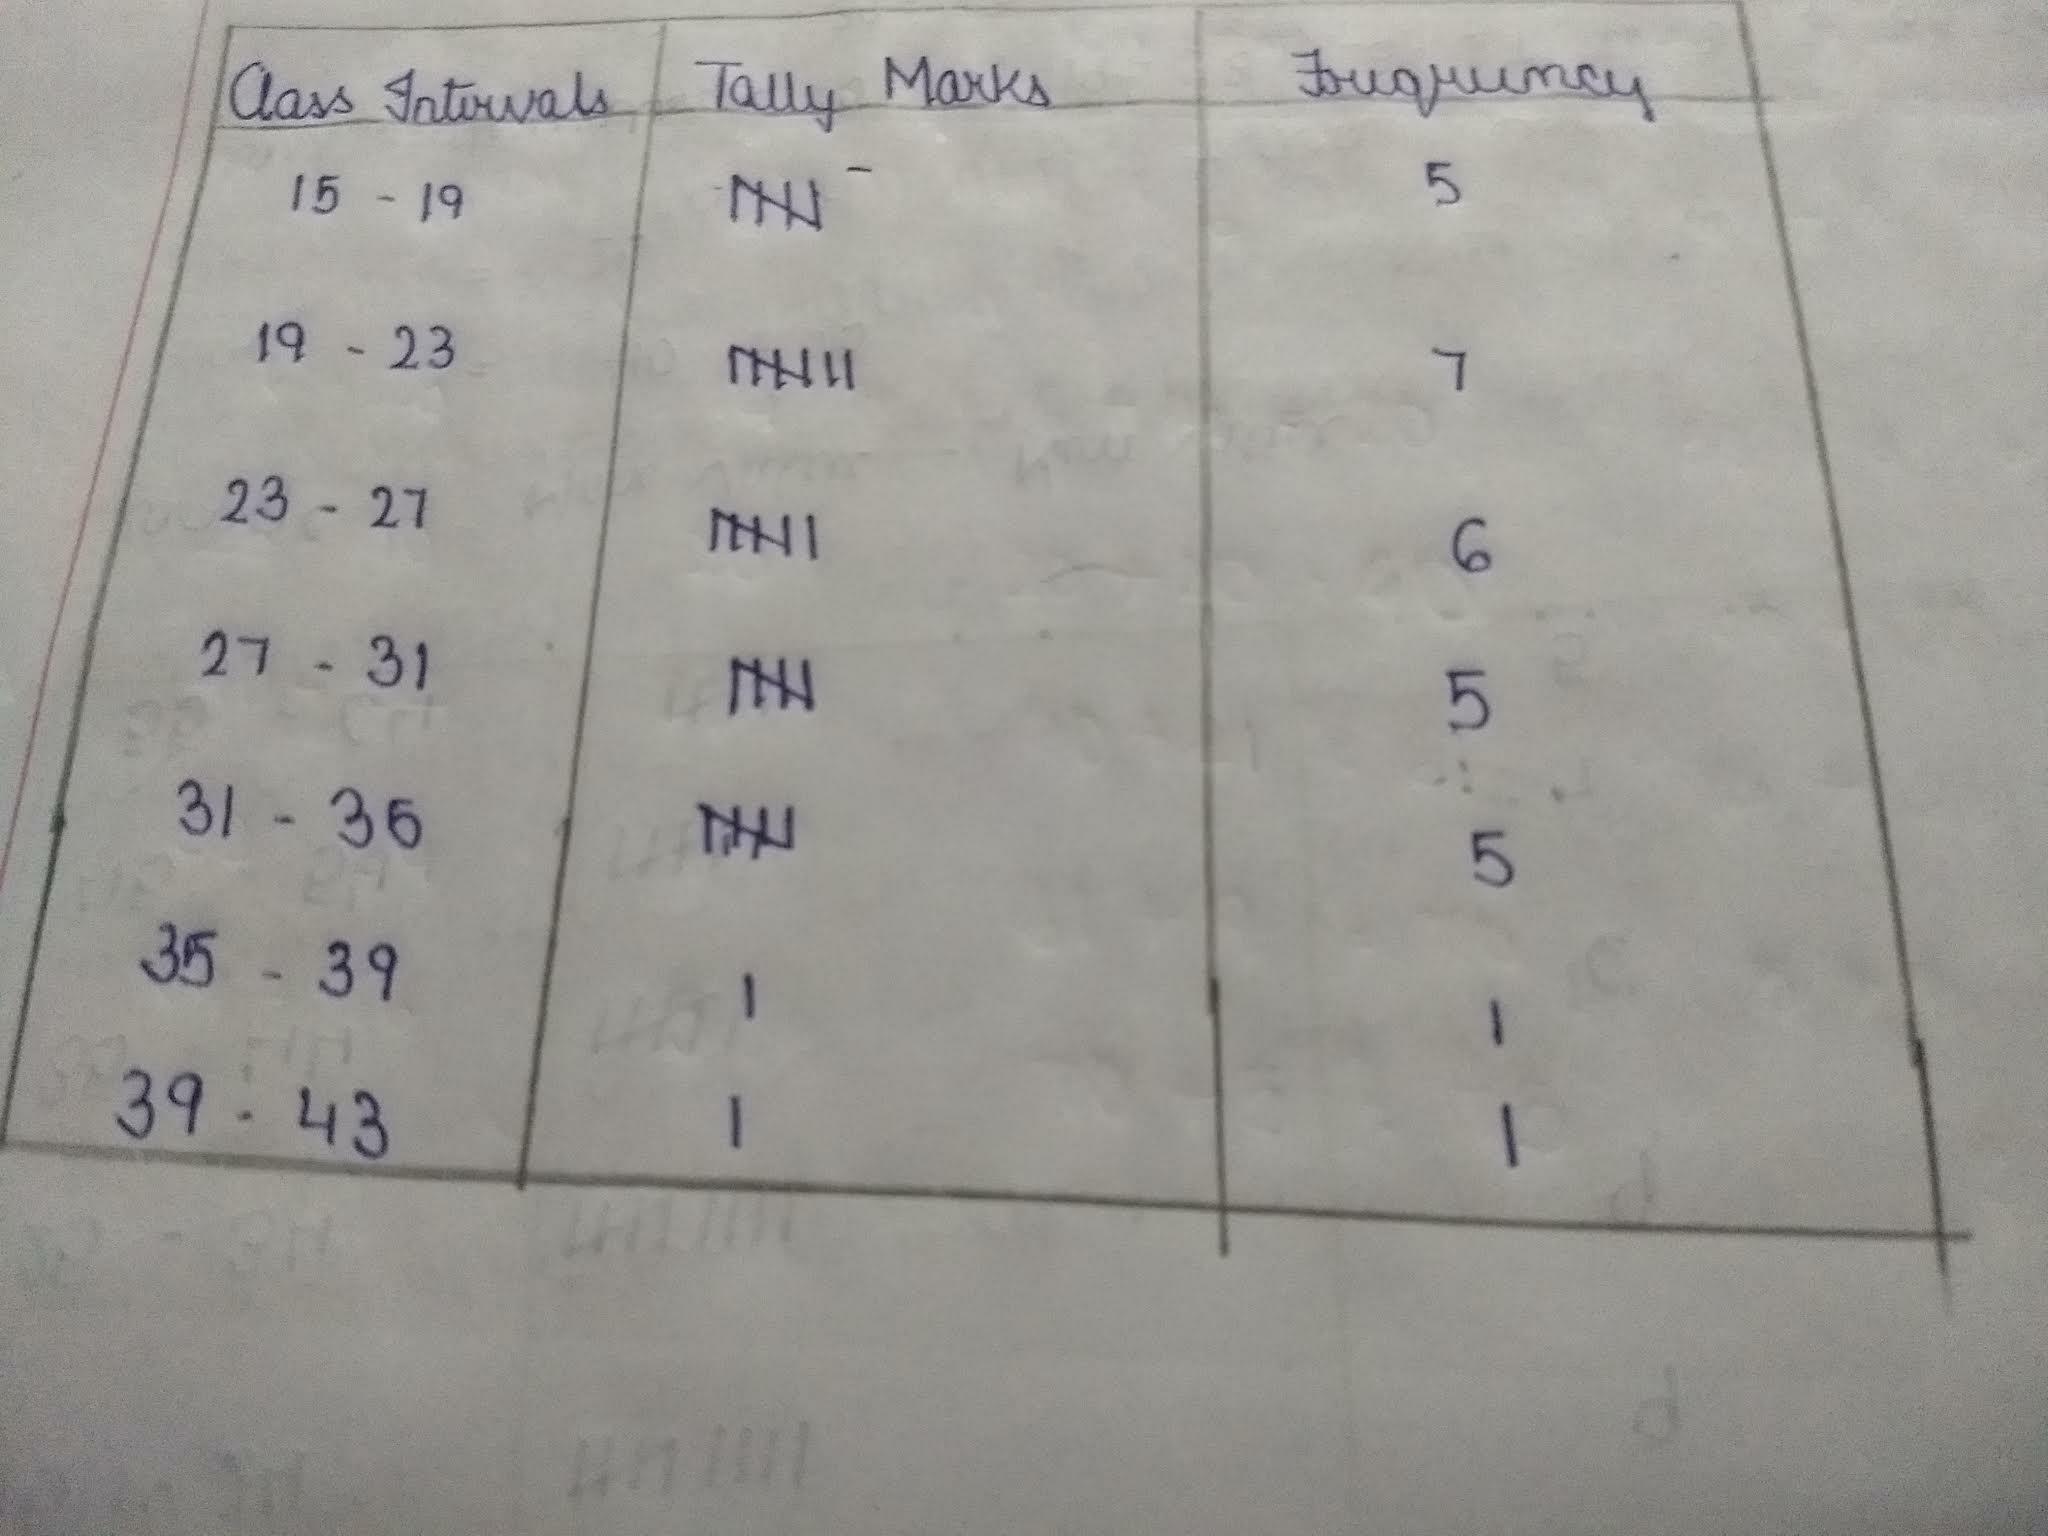 Class Intervals Tally Marks Frequency
15 - 19 𝍸 5
19 - 23 𝍸 || 7
23 - 27 𝍸 | 6
27 - 31 𝍸 5
31 - 35 𝍸 5
35 - 39 | 1
39 - 43 | 1